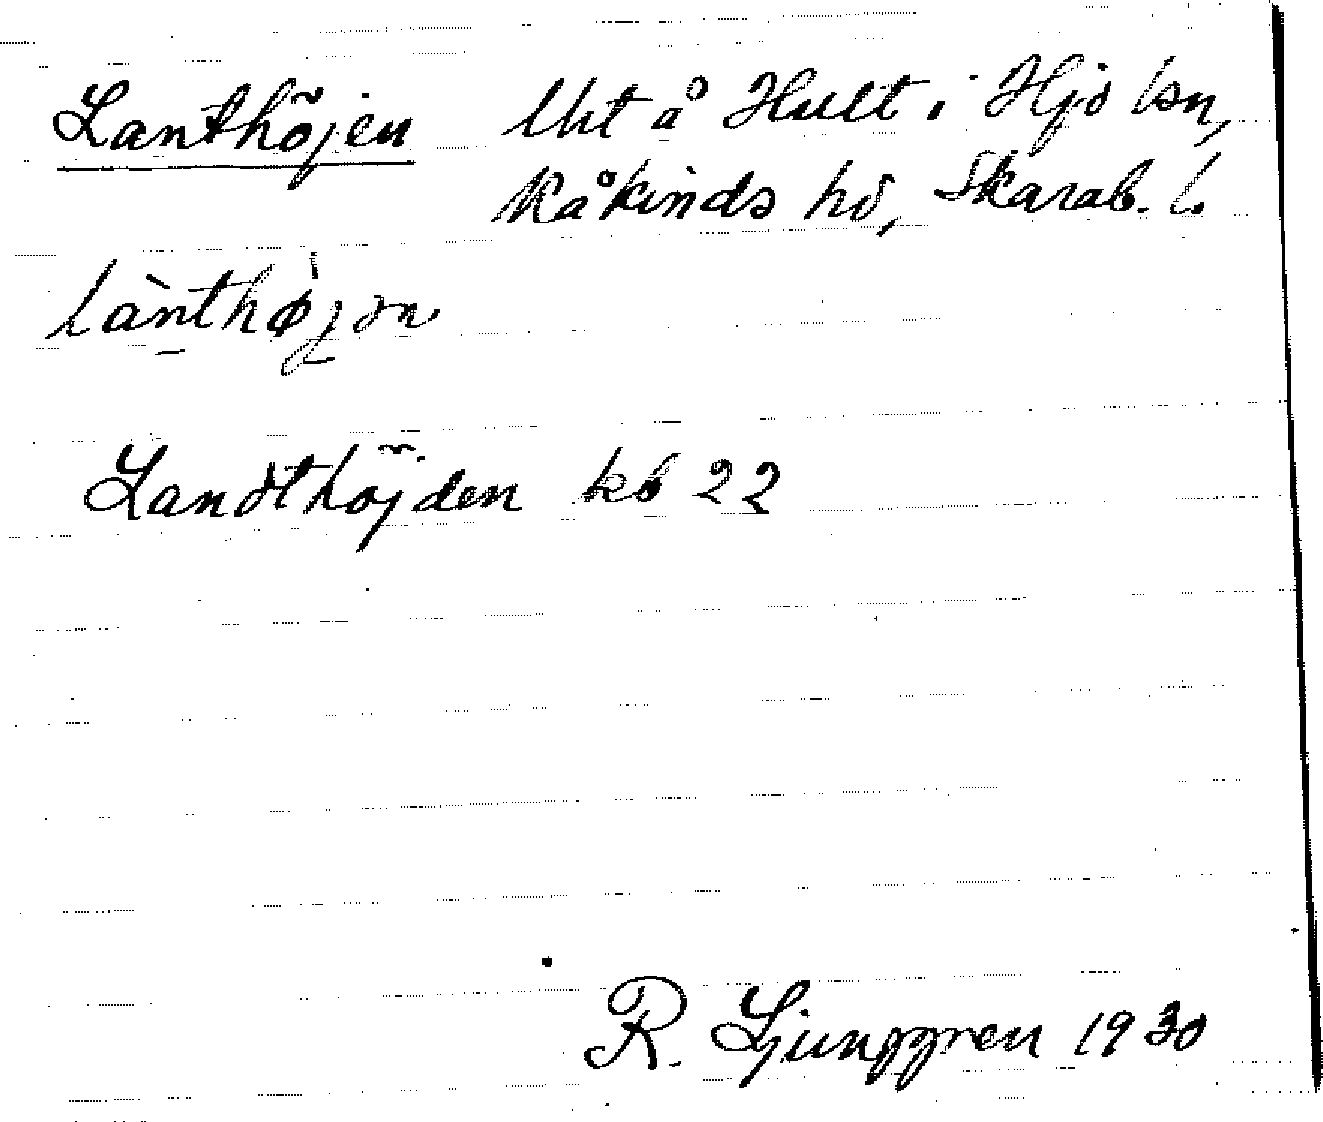 Lanthöjen Uht å Hult i Hjo lsn,
Kåkinds hd, Skarab. l.
lànthøjən
Landthöjden kb 22
R. Ljunggren 1930